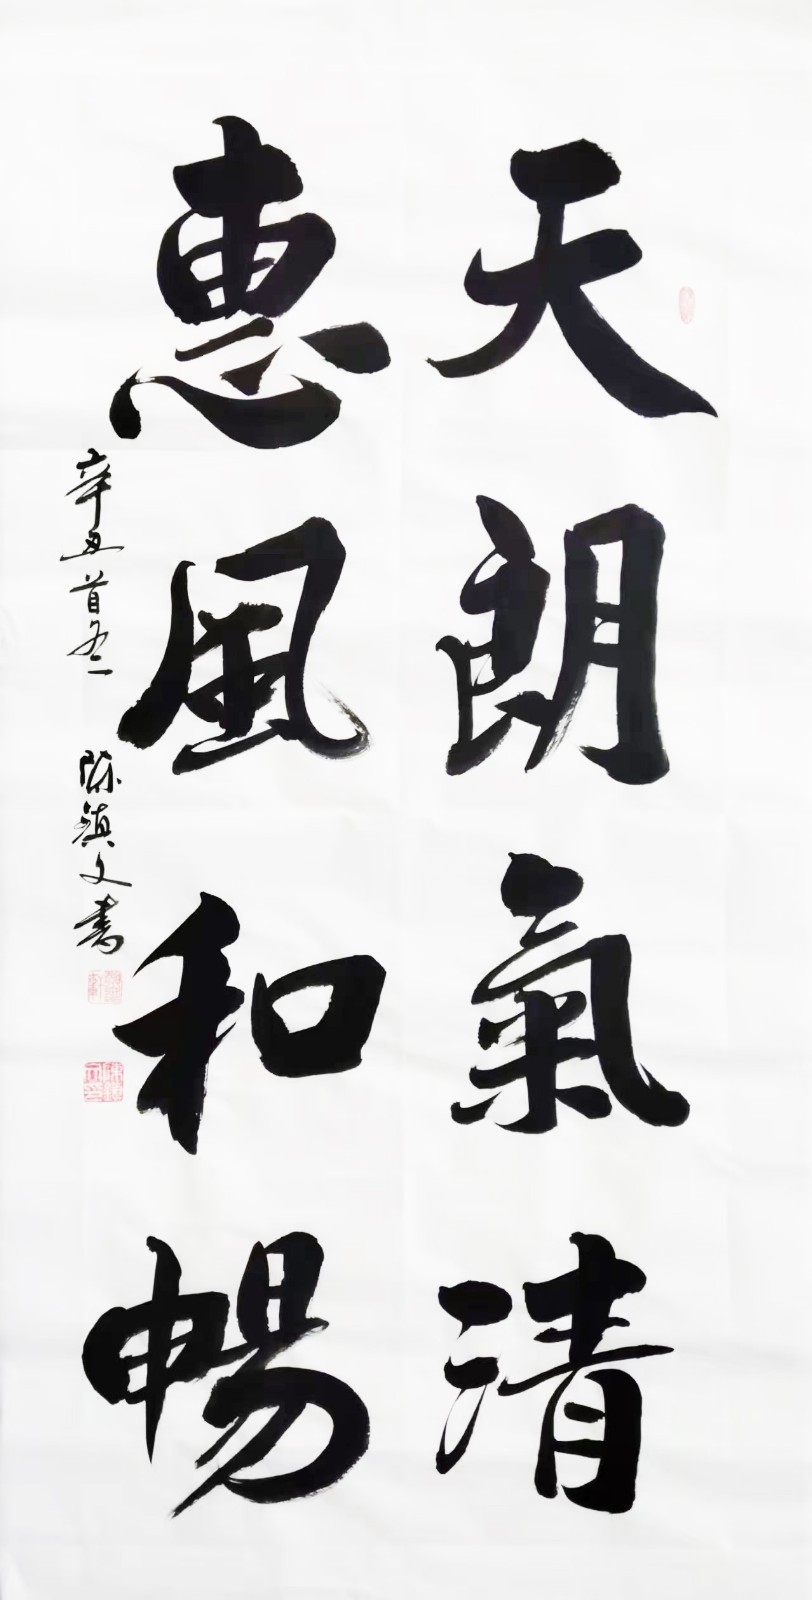 天朗氣清
惠風和暢
辛丑首冬 陳鎮文書